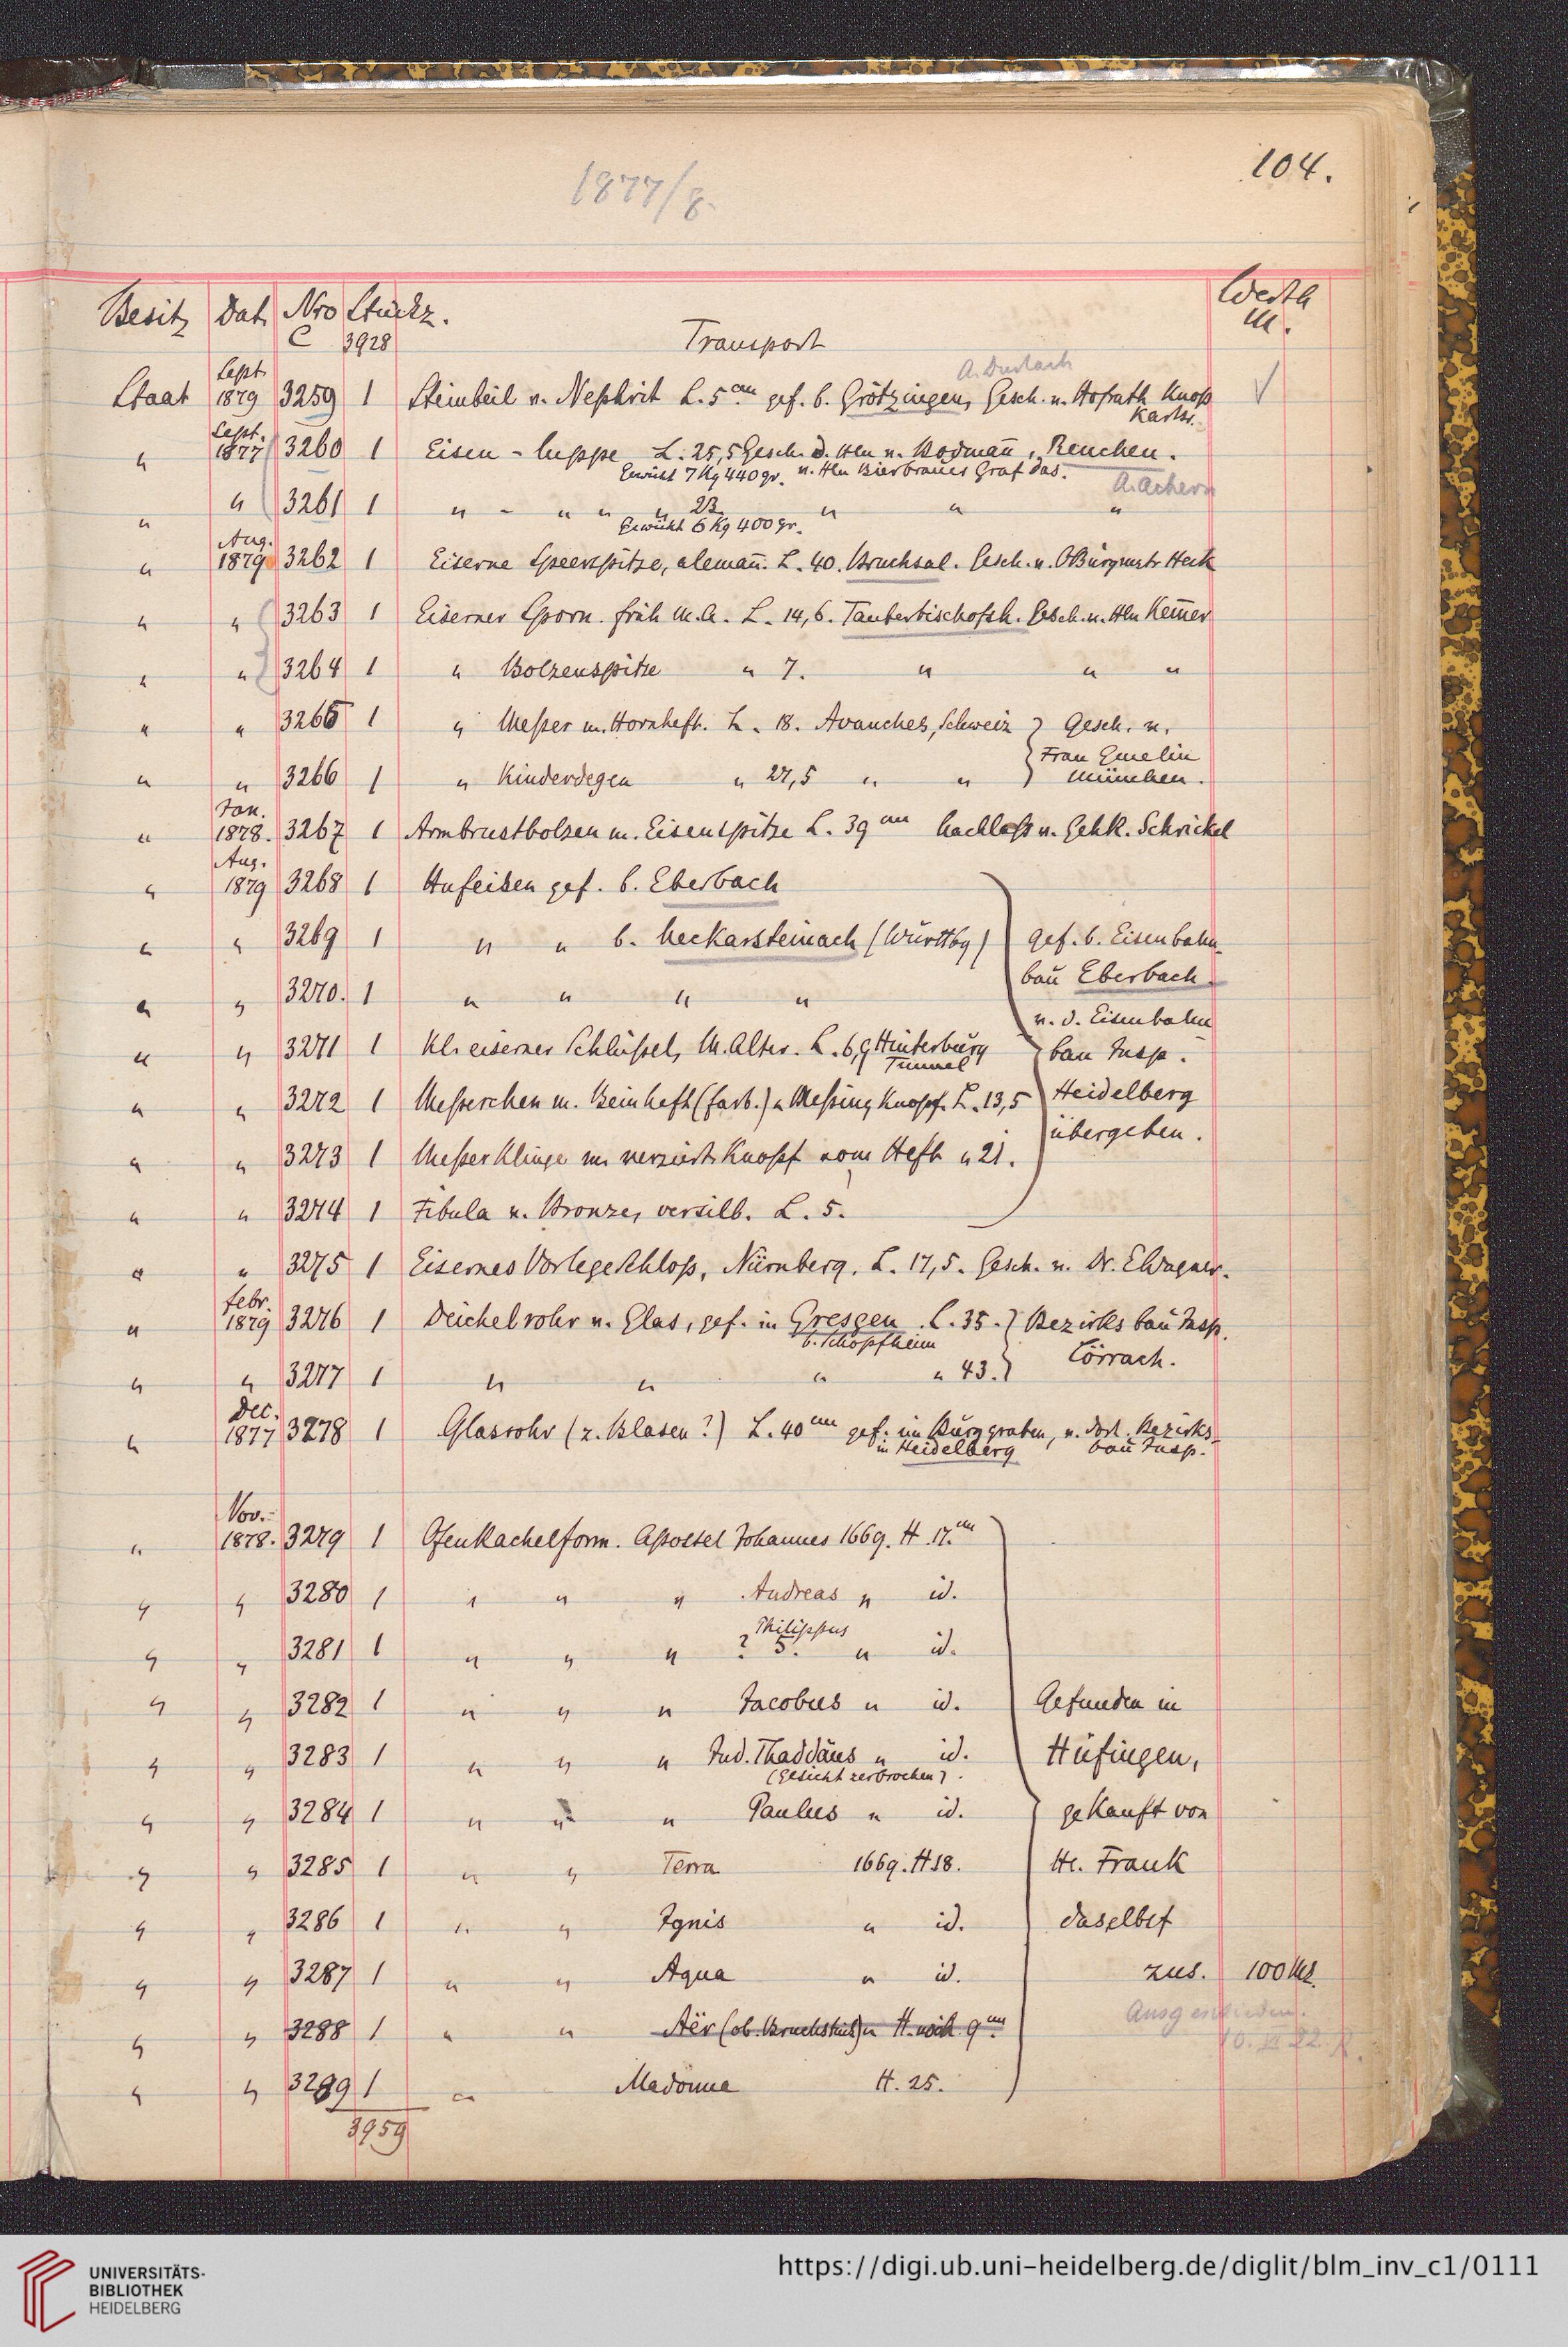 104.
1877/8.
Besitz Dat. Nro Stückz. Werth
C 3928 Transport M.
A. Durlach
Staat Sept. 1879 3259 1 Steinbeil v. Nephrit L. 5 cm gef. b. Grötzingen, Gesch. v. Hofrath Knop
Karlsr.
" Sept. 1877 3260 1 Eisen-luppe L. 25,5 Gesch. d. Hln v. Bodmañ, Renchen.
Gewicht 7 Kg 440 gr. u. Hln Bierbrauer Graf das.
A. Achern
" " 3261 1 " - " " " 23 " " "
Gewicht 6 Kg 400 gr.
" Aug. 1879 3262 1 Eiserne Speerspitze, alemañ. L. 40. Bruchsal. Gesch. v. OBürgmstr Heck
" " 3263 1 Eiserner Sporn. früh M.A. L. 14,6. Tauberbischofsh. Gesch. v. Hln Kem̃er
" " 3264 1 " Bolzenspitze " 7. " " "
" " 3265 1 " Meßer m. Hornheft. L. 18. Avanches, Schweiz } Gesch. v.
Frau Gmelin
" " 3266 1 " Kinderdegen " 27,5 " " } München.
" Jan. 1878. 3267 1 Armbrustbolzen m. Eisenspitze L. 39 cm Nachlaß v. GehR. Schrickel
" Aug. 1879 3268 1 Hufeisen gef. b. Eberbach
" " 3269 1 " " b. Neckarsteinach (Württbg) gef. b. Eisenbahn-
bau Eberbach
" " 3270. 1 " " " "
v. d. Eisenbahn
" " 3271 1 Kl. eiserner Schlüssel, M. Alter. L. 6,9 Hinterburg bau Insp.
Tunnel
" " 3272 1 Messerchen m. Beinheft (farb.) u. Meßing Knopf. L. 13,5 Heidelberg
übergeben.
" " 3273 1 Messerklinge m. verziert. Knopf vom Heft " 21.
" " 3274 1 Fibula v. Bronze, versilb. L. 5.
" " 3275 1 Eisernes Vorlegeschloß, Nürnberg. L. 17,5. Gesch. v. Dr. E Wagner.
" Febr. 1879 3276 1 Deichelrohr v. Glas, gef. in Gresgen L. 35. } Bezirksbau Insp.
b. Schopfheim
" " 3277 1 " " " " 43. } Lörrach.
" Dec. 1877 3278 1 Glasrohr (z. Blasen?) L. 40 cm gef. im Burggraben, v. dort. Bezirks-
in Heidelberg bau Insp.
" Nov. 1878. 3279 1 Ofenkachelform. Apostel Johannes 1669. H. 17. cm
" " 3280 1 " " " Andreas " id.
Philippus
" " 3281 1 " " " ? 5. " id.
" " 3282 1 " " " Jacobus " id. Gefunden in
" " 3283 1 " " " Jud. Thaddäus " id. Hüfingen,
(Gesicht zerbrochen).
" " 3284 1 " " " Paulus " id. gekauft von
" " 3285 1 " " Terra 1669. H 18. H. Frank
" " 3286 1 " " Ignis " id. daselbst
" " 3287 1 " " Aqua " id. zus. 100 M.
" " 3288 1 " " Aër (ob. Bruchstück) " H. noch 9 cm Ausgeschieden.
" " 3289 1 " Madonna H. 25.
3959
UNIVERSITÄTS-
BIBLIOTHEK
HEIDELBERG
https://digi.ub.uni-heidelberg.de/diglit/blm_inv_c1/0111